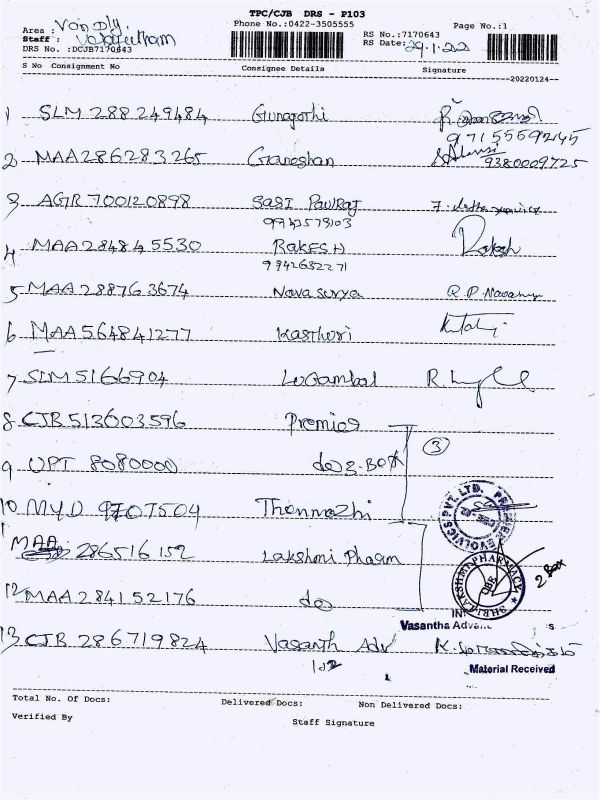 TPC/CJB DRS - P103
Area : Van Dly.
Phone No.:0422-3505555
Page No.:1
Staff :
RS No.:7170643
DRS No. :DCJB7170643
RS Date: 29.1.22
S No Consignment No Consignee Details Signature
20220124
1 SLM 288249484 Gunagothi
9715559245
2 MAA286283265 Ganeshan 9380009725
3 AGR 700120898 SASI PAULRAJ
4 MAA 284845530 RAKESH Rakesh
9942632271
5 MAA 288763674 Nava surya
6 MAA 564841277 Kasthuri
7 SLM 5166904 Logambal
8 CJB 513603596 Premier
3
9 UPT 8080000 do 3. Box
10 MYD 9707504 Thenmozhi
11 MAA 286516152 Lakshmi Pharm
2 Box
12 MAA 2841152176 do
Vasantha
13 CJB 286719824 Vasanth Adv
Material Received
Total No. Of Docs: Delivered Docs: Non Delivered Docs:
Verified By Staff Signature